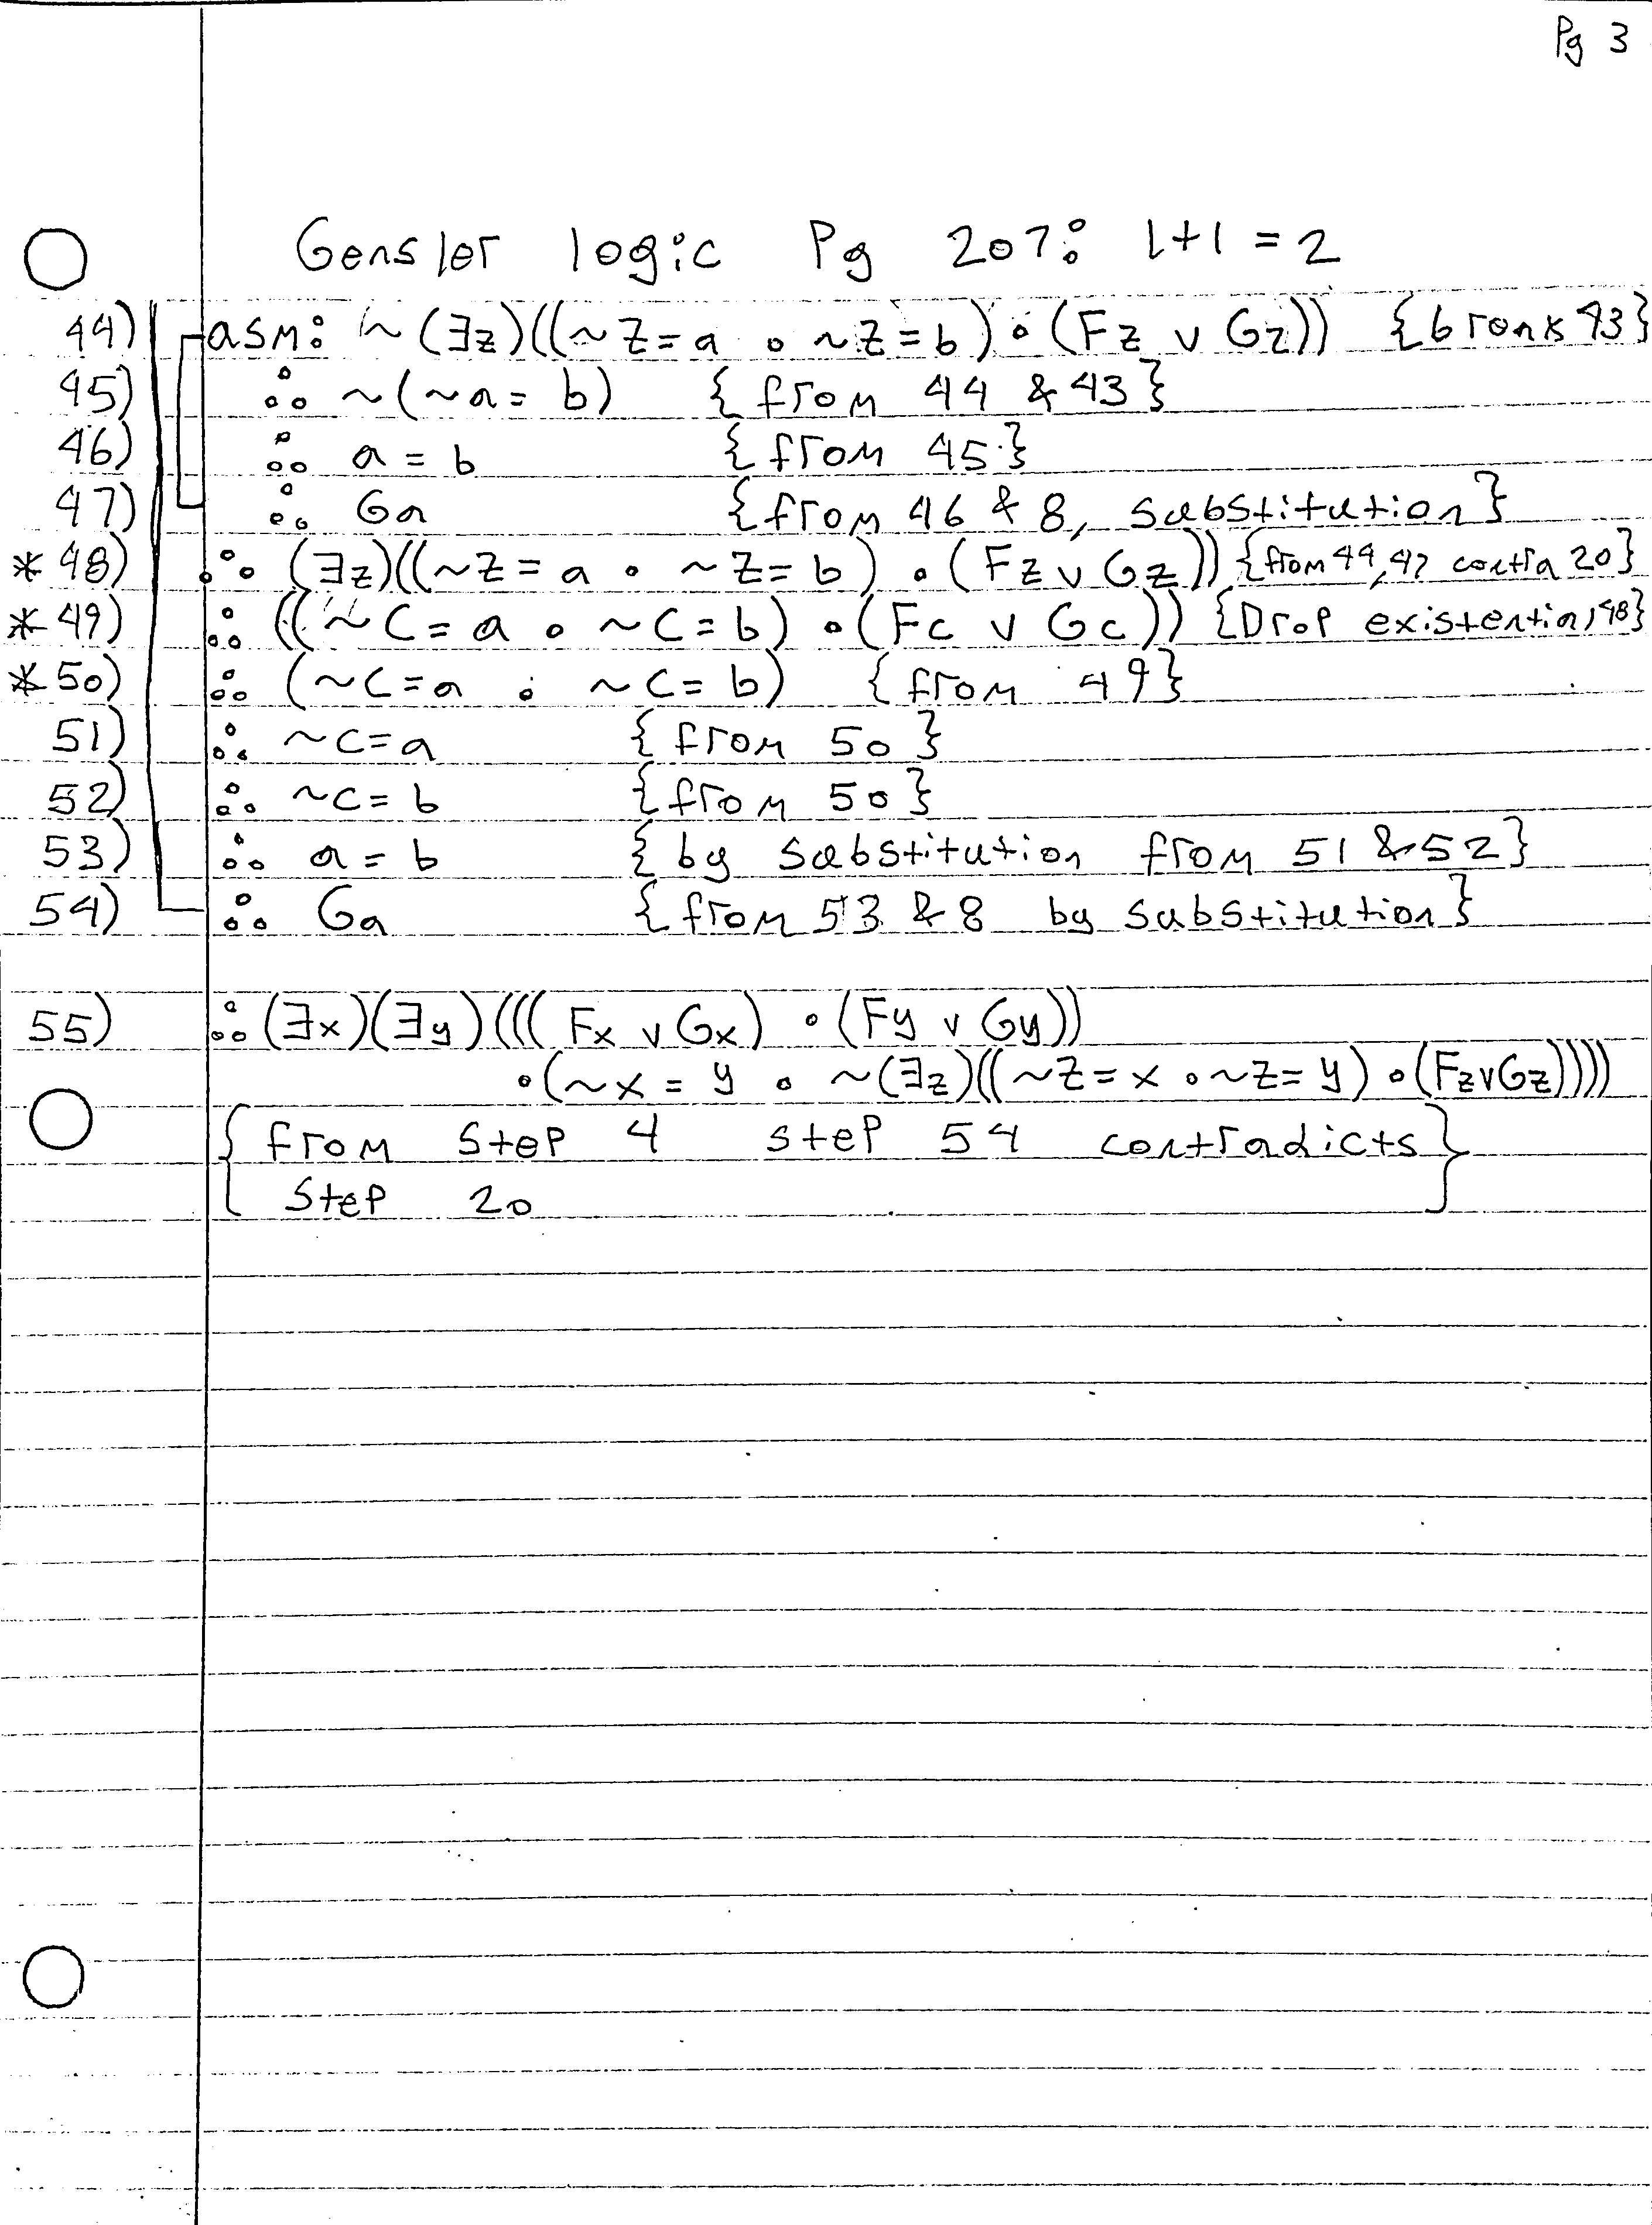 Pg 3
Gensler logic Pg 207: 1+1=2
44) asm: ~(∃z)((~z=a · ~z=b)·(Fz v Gz)) {break 43}
45) ∴ ~(~a=b) {from 44 & 43}
46) ∴ a=b {from 45}
47) ∴ Ga {from 46 & 8, substitution}
*48) ∴ (∃z)((~z=a · ~z=b)·(Fz v Gz)) {from 44,47 contra 20}
*49) ∴ ((~c=a · ~c=b)·(Fc v Gc)) {Drop existential 48}
*50) ∴ (~c=a · ~c=b) {from 49}
51) ∴ ~c=a {from 50}
52) ∴ ~c=b {from 50}
53) ∴ a=b {by substitution from 51 & 52}
54) ∴ Ga {from 53 & 8 by substitution}
55) ∴(∃x)(∃y)(((Fx v Gx) · (Fy v Gy))
·(~x=y · ~(∃z)((~z=x · ~z=y)·(FzvGz))))
{from step 4 step 54 contradicts
step 20}